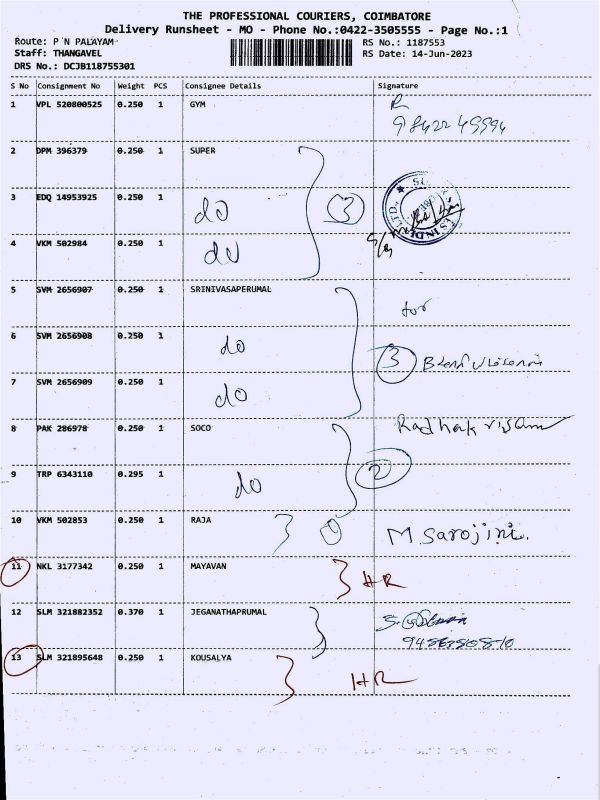 THE PROFESSIONAL COURIERS, COIMBATORE
Delivery Runsheet - MO - Phone No.:0422-3505555 - Page No.:1
Route: P N PALAYAM
RS No.: 1187553
Staff: THANGAVEL
RS Date: 14-Jun-2023
DRS No.: DCJB118755301
S No Consignment No Weight PCS Consignee Details Signature
1 VPL 520800525 0.250 1 GYM R
2 DPM 396379 0.250 1 SUPER
3 EDQ 14953925 0.250 1 do 3
4 VKM 502984 0.250 1 do
5 SVM 2656907 0.250 1 SRINIVASAPERUMAL for
6 SVM 2656908 0.250 1 do 3
7 SVM 2656909 0.250 1 do
8 PAK 286978 0.250 1 SOCO
9 TRP 6343110 0.295 1 do 2
10 VKM 502853 0.250 1 RAJA M Sarojini.
11 NKL 3177342 0.250 1 MAYAVAN HR
12 SLM 321882352 0.370 1 JEGANATHAPRUMAL
13 SLM 321895648 0.250 1 KOUSALYA HR